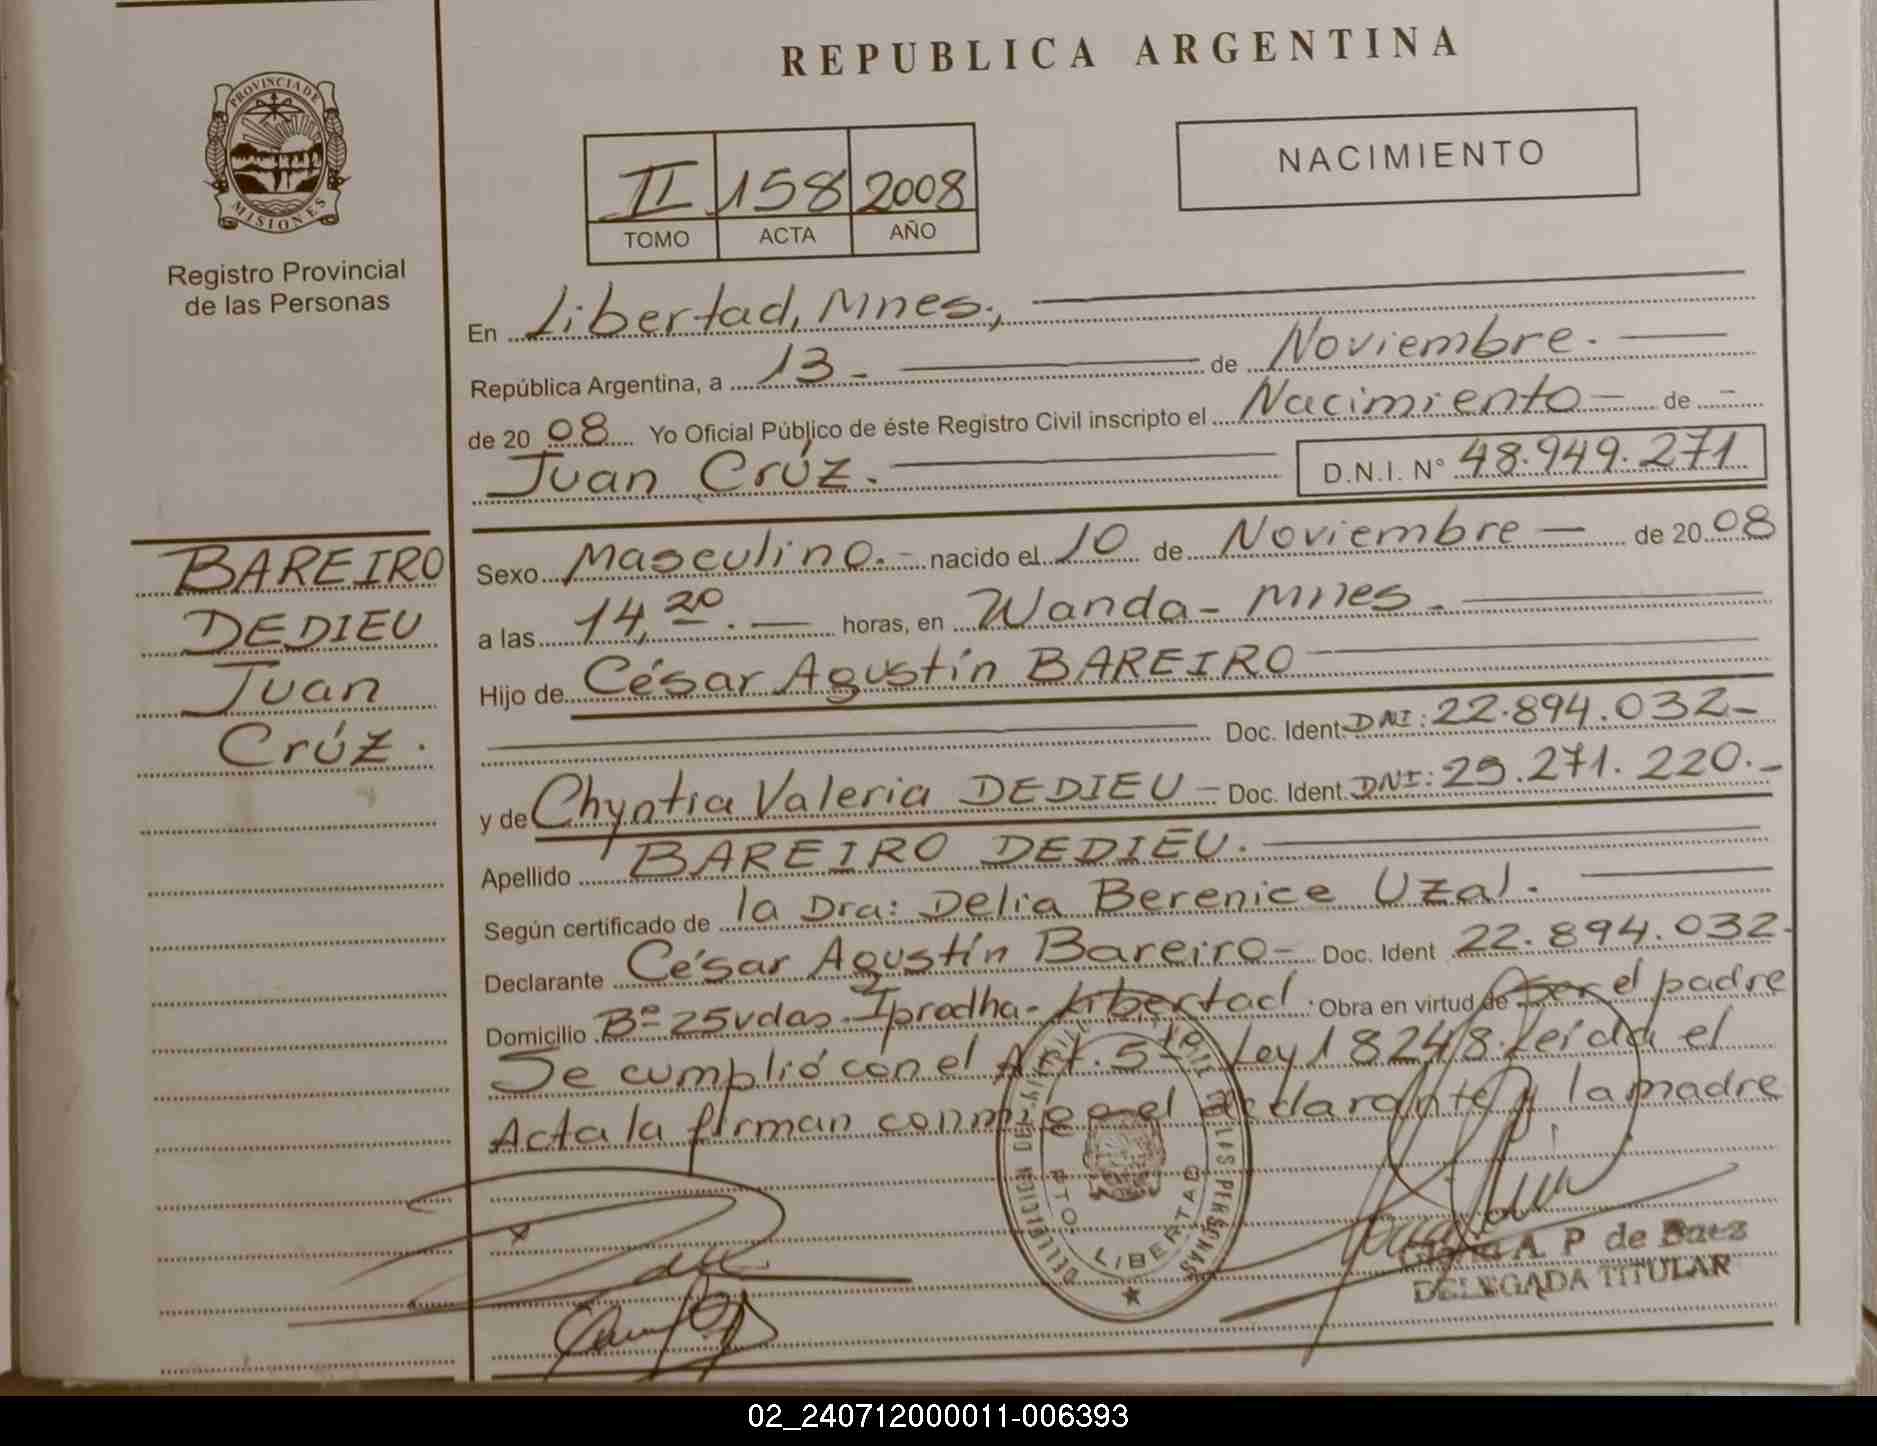 REPUBLICA ARGENTINA
PROVINCIA DE
MISIONES
Registro Provincial
de las Personas
NACIMIENTO
II 158 2008
TOMO ACTA AÑO
En Libertad, Mnes.,
República Argentina, a 13 - de Noviembre.
de 20 08 Yo Oficial Público de éste Registro Civil inscripto el Nacimiento - de -
Juan Crúz. D.N.I. N° 48.949.271
BAREIRO
DEDIEU
Juan
Crúz.
Sexo Masculino. - nacido el 10 de Noviembre - de 20 08
a las 14,20. - horas, en Wanda - Mnes -
Hijo de César Agustín BAREIRO
Doc. Ident. DNI: 22.894.032-
y de Chyntia Valeria DEDIEU - Doc. Ident. DNI: 29.271.220.-
Apellido BAREIRO DEDIEU.
Según certificado de la Dra: Delia Berenice Uzal.
Declarante César Agustín Bareiro - Doc. Ident 22.894.032-
Domicilio Bº 25 vdas. Iprodha - Libertad. Obra en virtud de Ser el padre
Se cumplió con el Art. 5to Ley 18248. Leída el
Acta la firman conmigo el declarante y la madre
DPTO. LIBERTAD
A. P de Baez
DELEGADA TITULAR
02_240712000011-006393